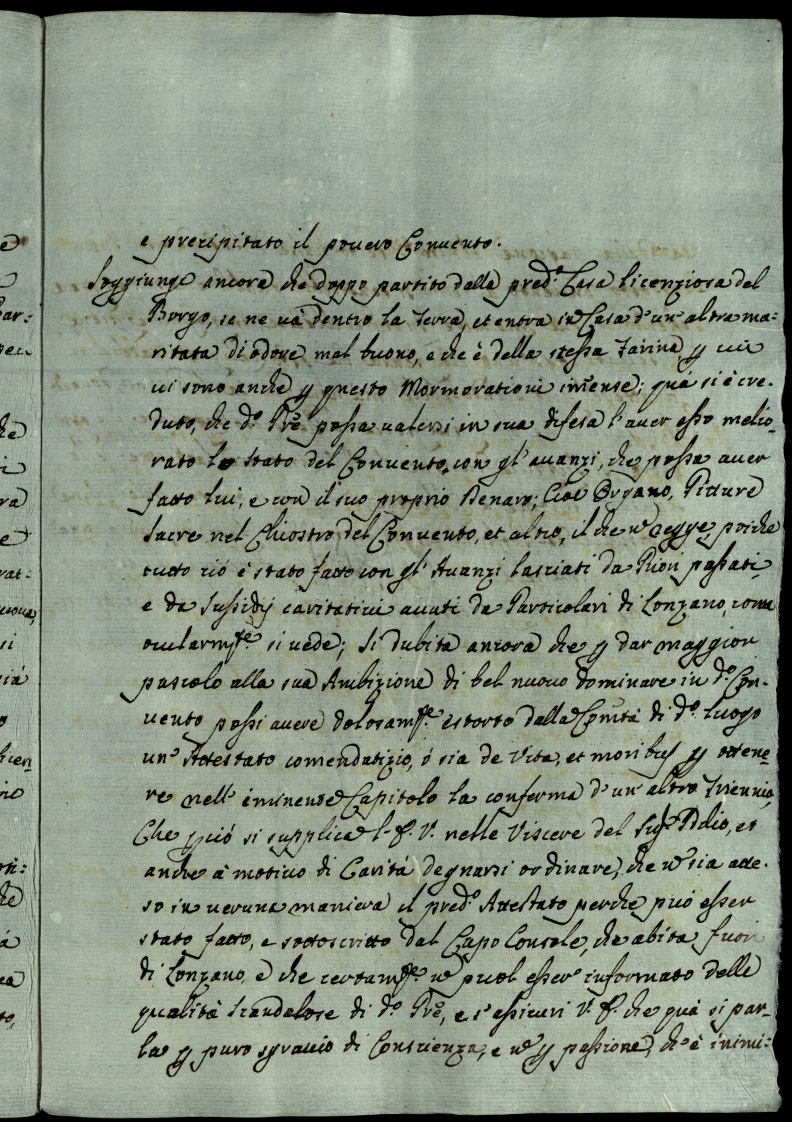 e precipitato il povero Convento.
Soggiunge ancora che doppo partito dalla pred.ª Casa licenziosa del
Borgo, se ne và dentro la Terra, et entra in Casa d'un'altra ma:
ritata di odore mal buono, e che è della stessa farina p cui
vi sono anche p questo Mormorationi imense; quà si è cre:
duto, che d.º Prē possa valersi in sua difesa l'aver esso melio,
rato lo stato del Convento con gl'avanzi, che possa aver
fatto lui, e con il suo proprio Denaro; Cioè Organo, Pitture
Sacre nel Chiostro del Convento, et altro, il che n̄ regge, poiche
tutto ciò è stato fatto con gl'Avanzi lasciati da Priori passati,
e da Sussidij caritativi avuti da Particolari di Lonzano, come
ocularmṫe si vede; Si dubita ancora che p dar maggior
pascolo alla sua Ambizione di bel nuovo dominare in d.º Con:
vento possi avere dolosamṫe estorto dalla Comītà di d.º luogo
un'Attestato comendatizio, ò sia de Vita, et moribus p ottene:
re nell'iminente Capitolo la conferma d'un'altro Triennio,
Che p ciò si supplica l'E. V. nelle Viscere del Sig.re Iddio, et
anche à motivo di Carità degnarsi ordinare, che n̄ sia atte:
so in veruna maniera il pred.º Attestato perche può esser
stato fatto, e sottoscritto dal Capo Console, che abita fuori
di Lonzano, e che certamṫe n̄ puol esser'informato delle
qualità scandalose di d.º Prē, e s'assicuri V. E. che quà si par:
la p puro sgravio di Conscienza, e n̄ p passione, ch'è inimi: